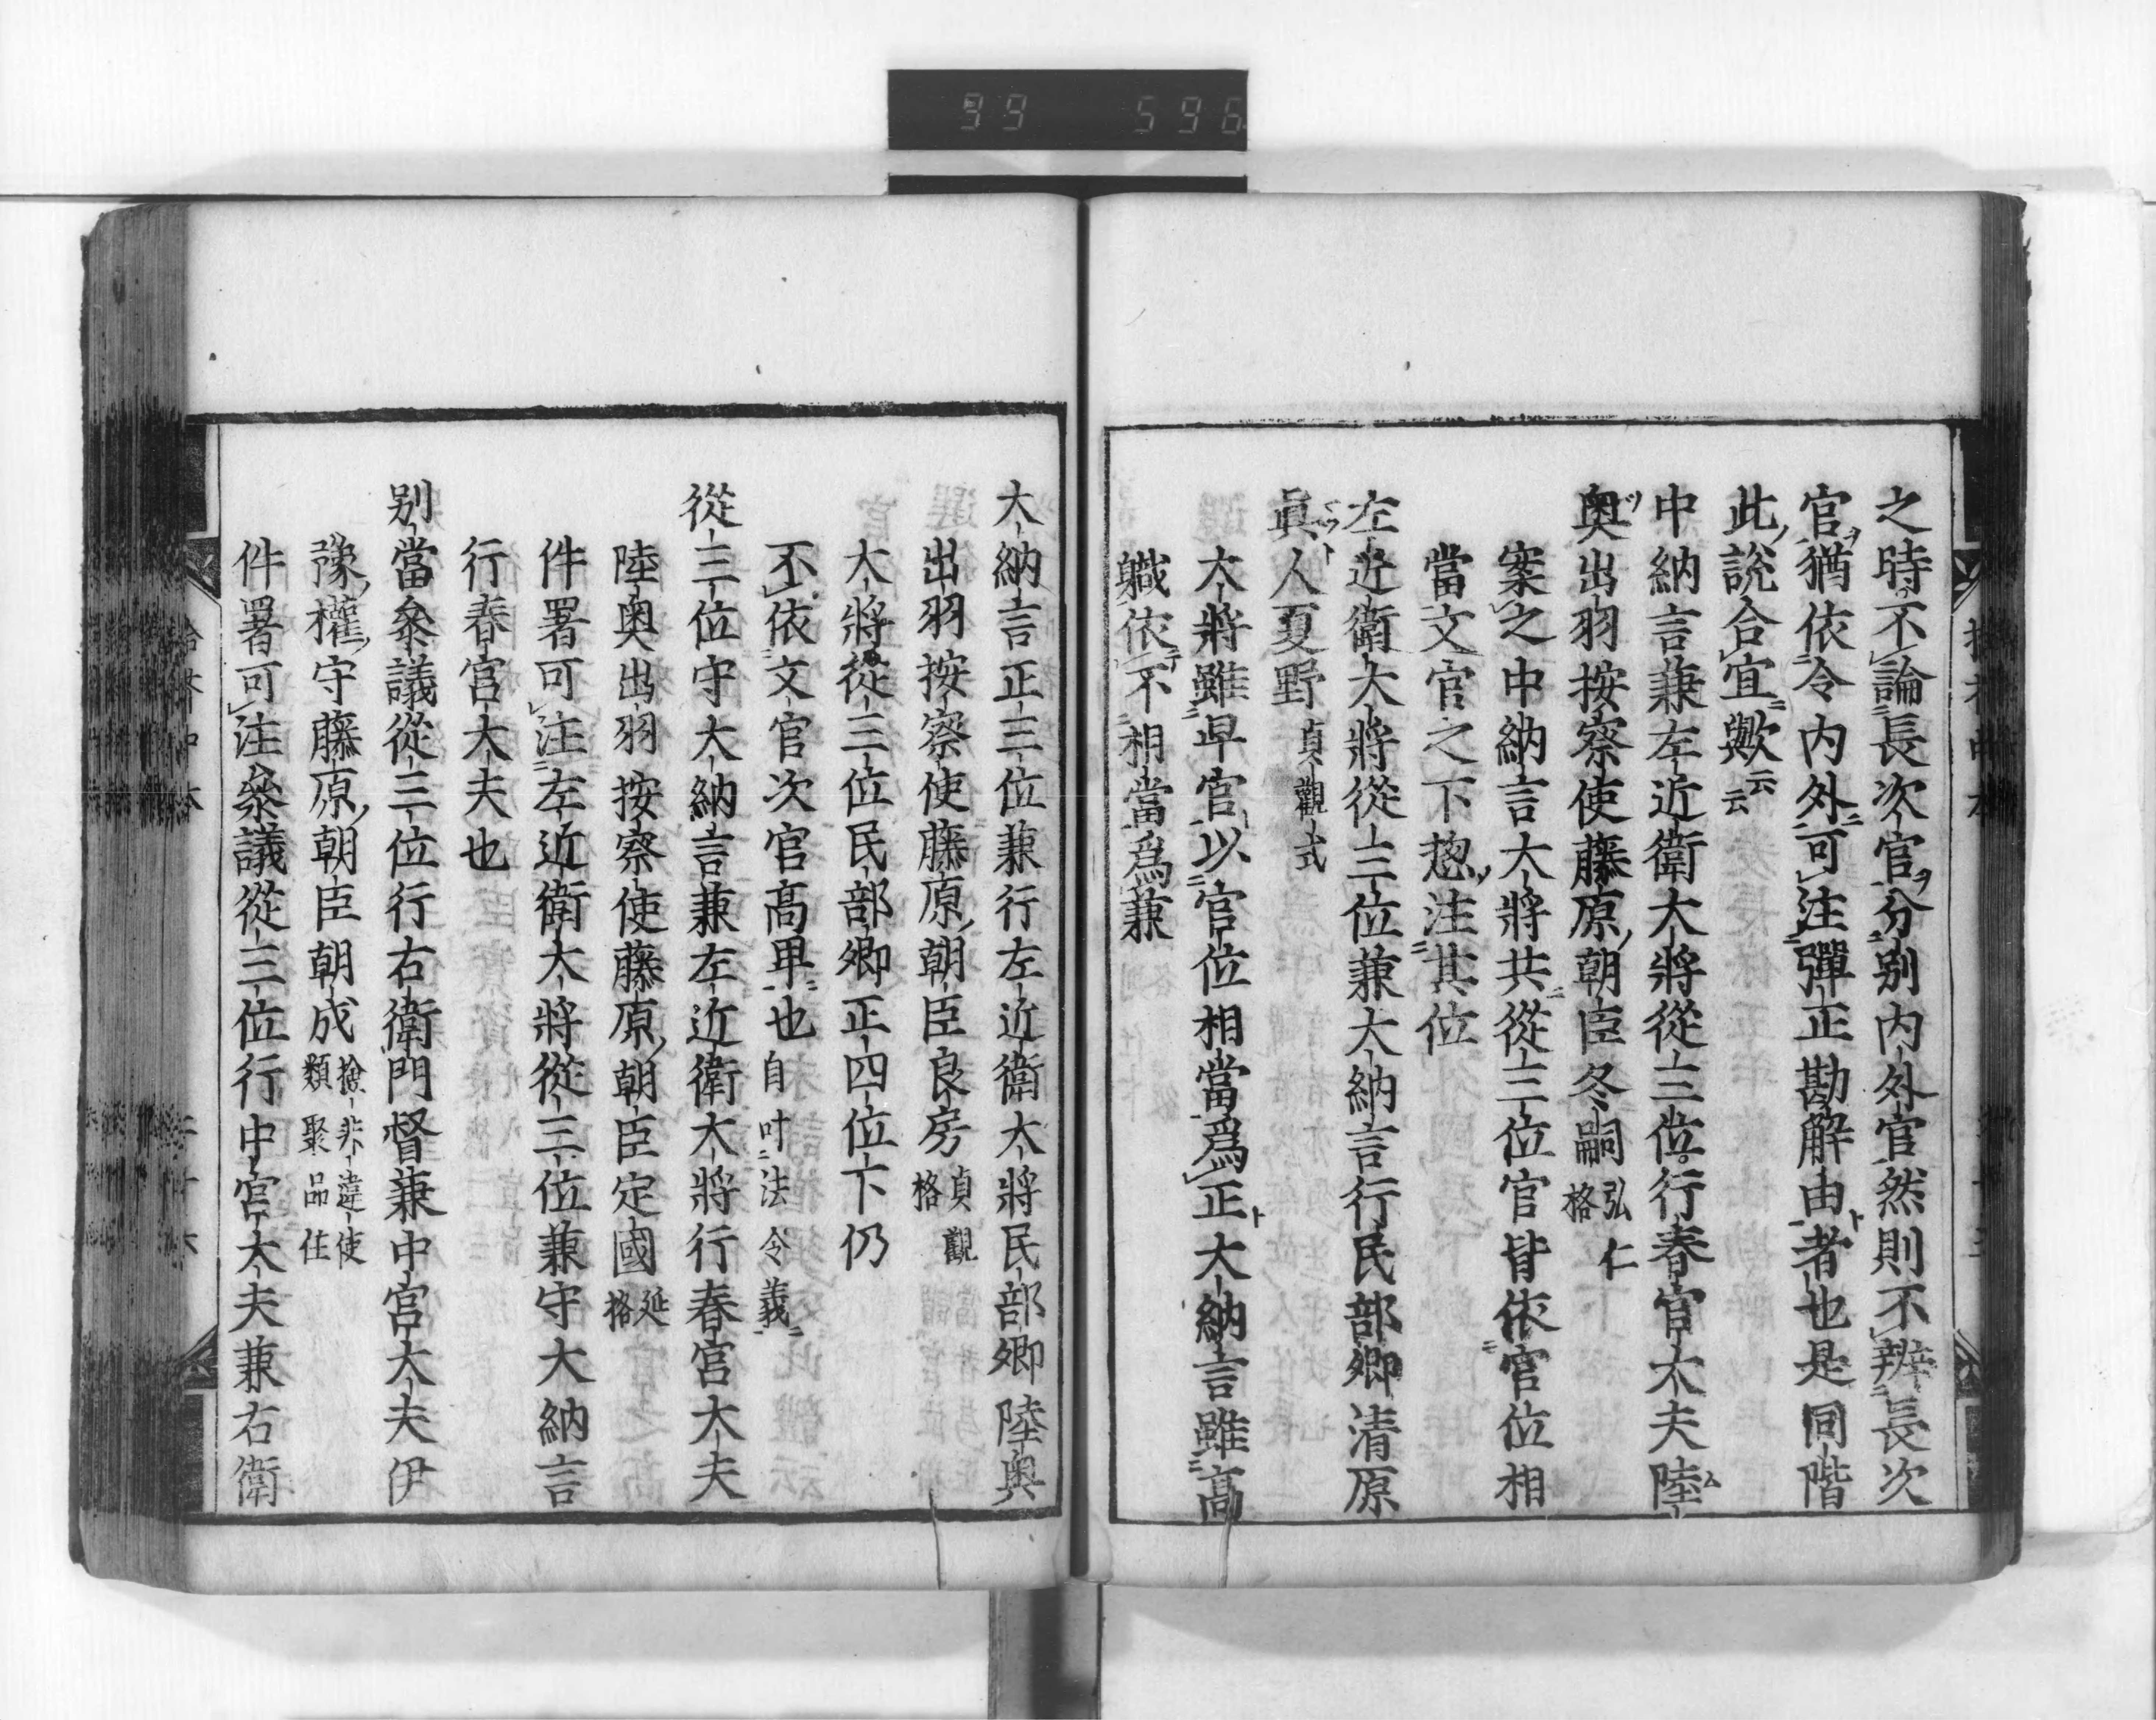 39 596
之時不論長次官分別内外官然則不辨長次
官猶依令内外可注彈正勘解由者也是同階
此説合宜歟云云
中納言兼左近衛大將從三位行春宮大夫陸
奥出羽按察使藤原朝臣冬嗣弘仁格
案之中納言大將共從三位官皆依官位相
當文官之下惣注其位
左近衛大將從三位兼大納言行民部卿清原
眞人夏野貞觀式
大將雖卑官以官位相當爲正大納言雖高
職依不相當爲兼
大納言正三位兼行左近衛大將民部卿陸奥
出羽按察使藤原朝臣良房貞觀格
大將從三位民部卿正四位下仍
不依文官次官高卑也自叶法令義
從三位守大納言兼左近衛大將行春宮大夫
陸奥出羽按察使藤原朝臣定國延格
件署可注左近衛大將從三位兼守大納言
行春宮大夫也
別當參議從三位行右衛門督兼中宮大夫伊
豫權守藤原朝臣朝成撿非違使類聚品任
件署可注參議從三位行中宮大夫兼右衛